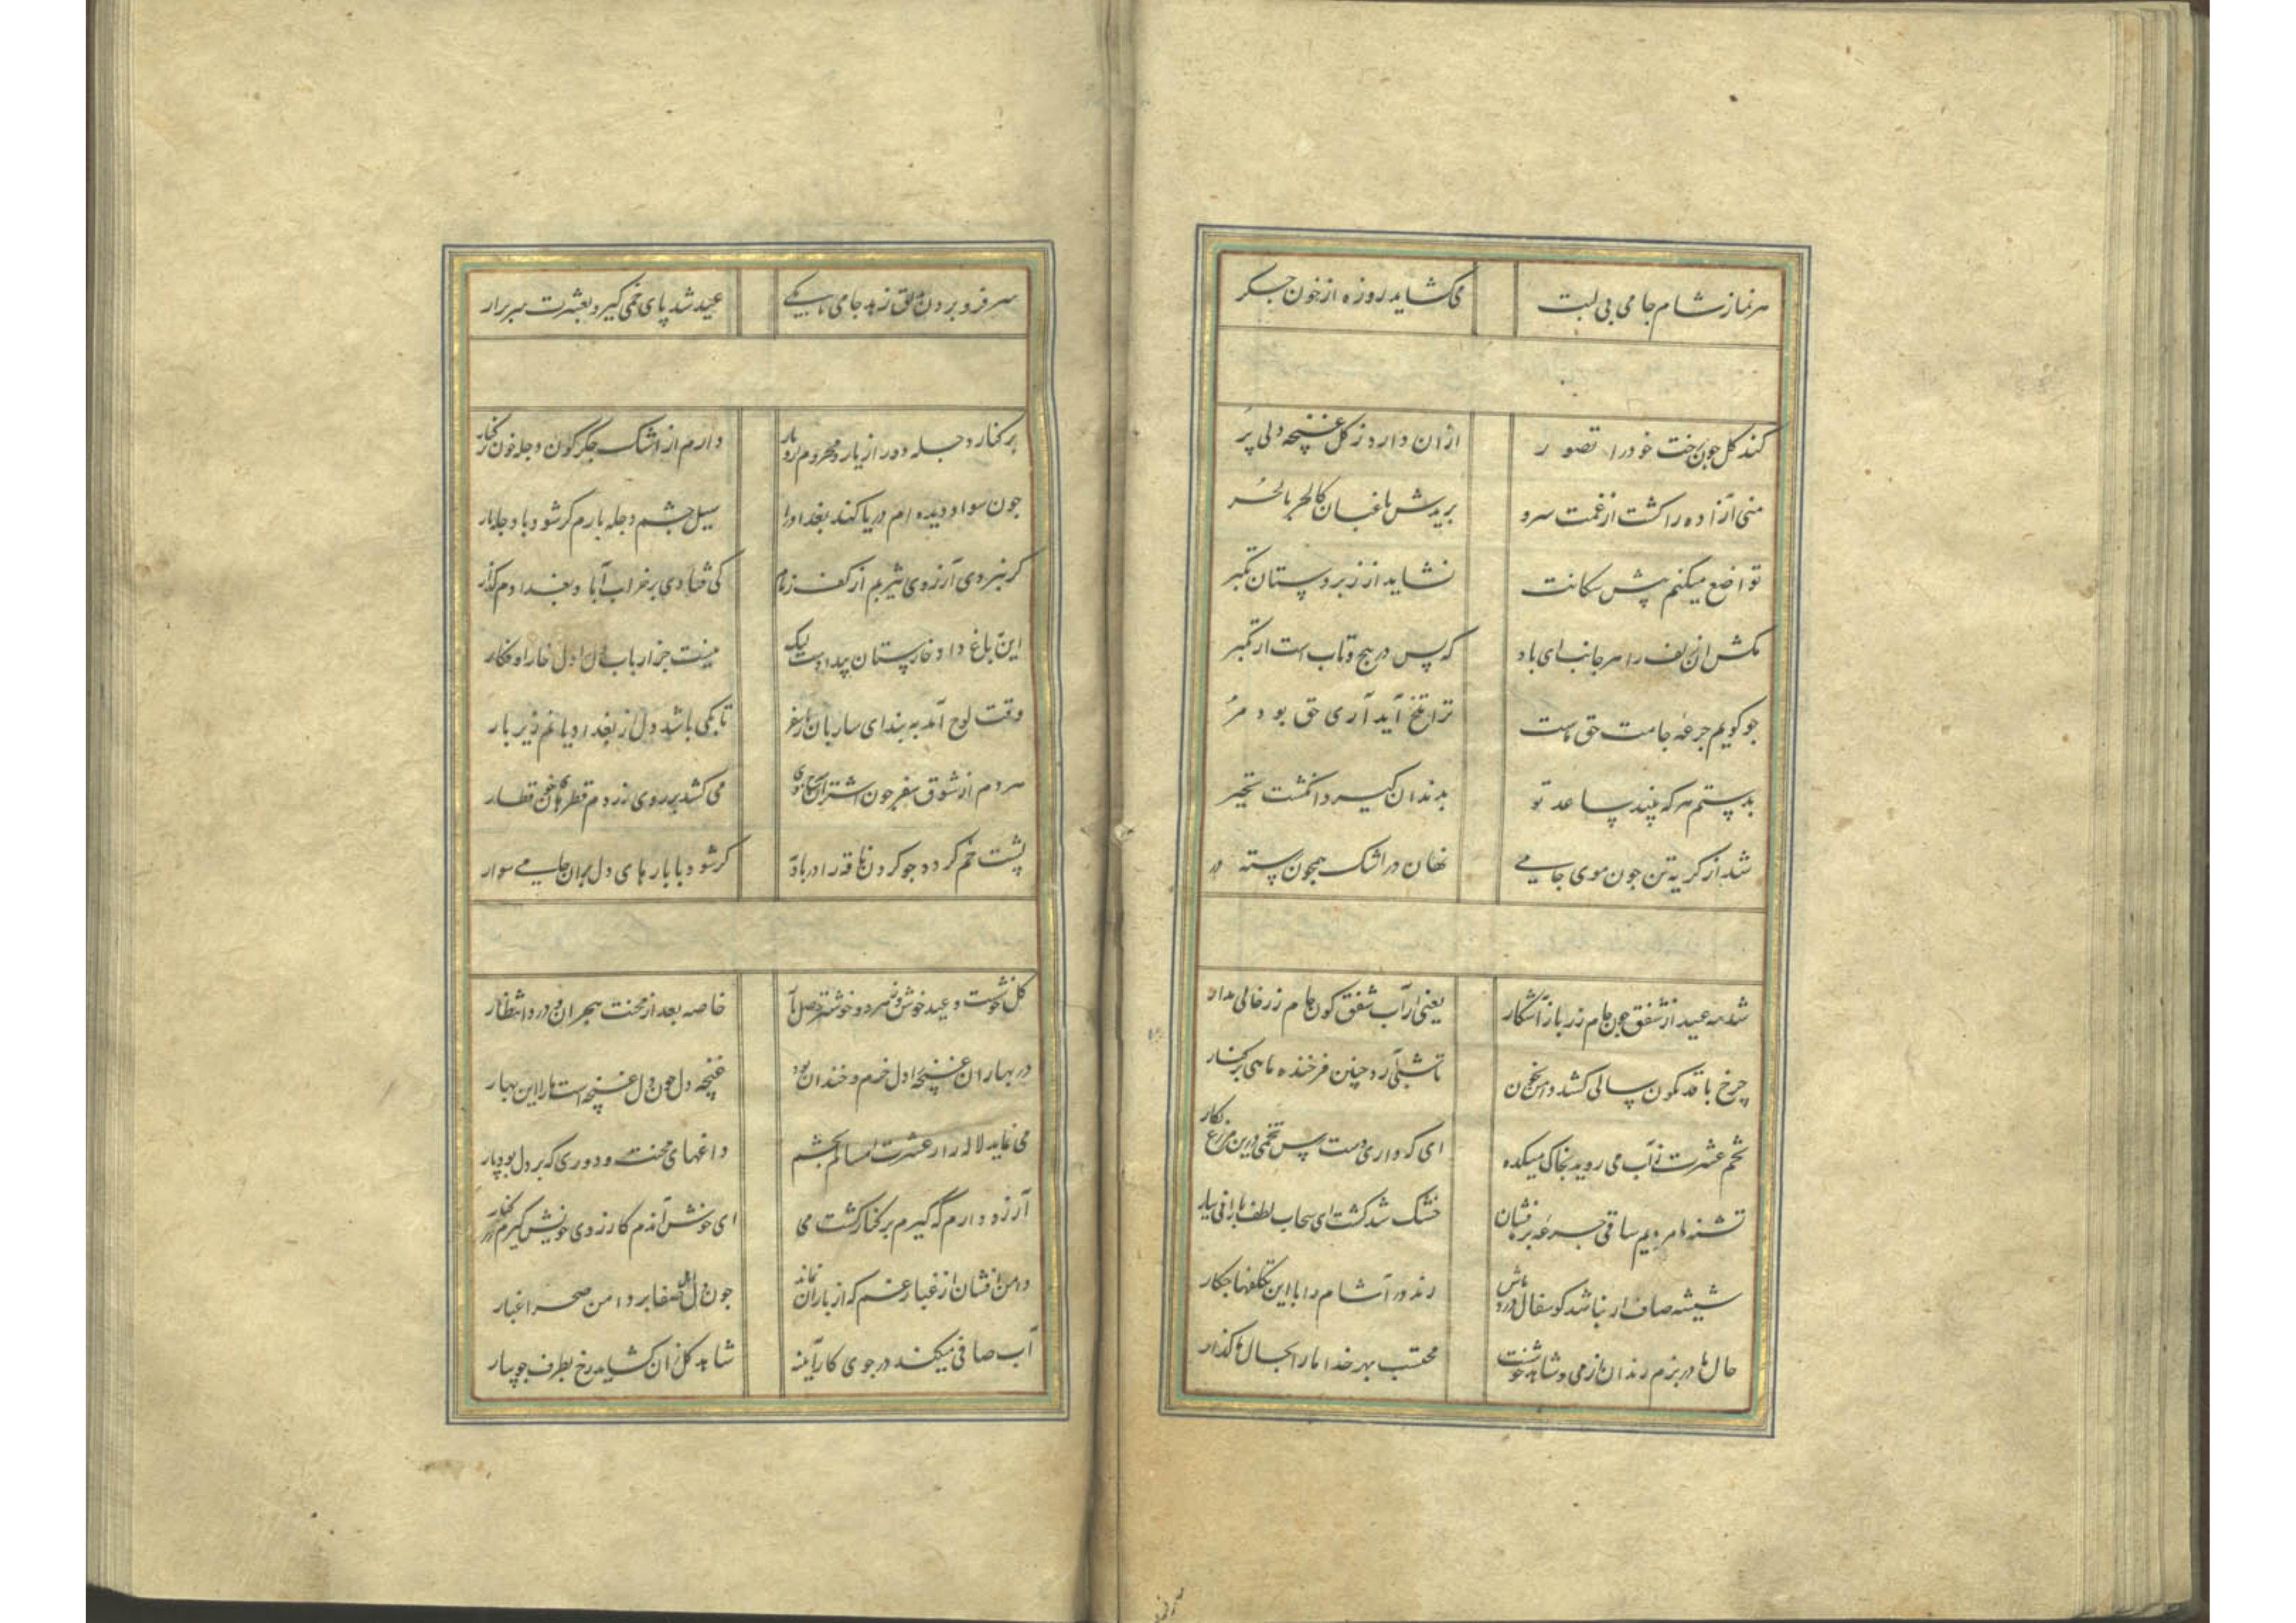 هر نماز شام جامی بی لبت می کشاید روزه از خون جکر
کند کل جون رخت خود را تصور ازان دارد ز کل غنچه دلی پر
منی آزاده را کشت از غمت سرو بریدش باغبان کالحر بالحر
تواضع میکنم پیش سکانت نشاید از زبردستان تکبر
مکش ان زلف را هر جانب ای باد که پس در پیچ و تاب است از
جو کویم جرعه جامت حق ماست ترا تلخ آید آری حق بود مر
بدستم هر که بیند ساعد تو بدندان کیرد انکشت تحیر
شد از کریه تن جون موی جامی نهان در اشک همچون رسته در
شد مه عید از شفق جون جام زر باز آشکار یعنی از آب شفق کون جام زر خالی مدار
چرخ با قد نکون سالی کشد دامن بخون تا شبی آرد چنین فرخنده ماهی بر کنار
تخم عشرت ز آب می روید بخاک میکده ای که داری دست پس تخمی درین مزرع بکار
تشنه ها مردیم ساقی جرعه بر ما فشان خشک شد کشت ای سحاب لطف بارانی ببار
شیشه صاف ار نباشد کو سفال درد باش رند درد آشام را با این تکلفها جکار
حال ما در بزم رندان از می و شاهد خوشست محتسب بهر خدا ما را بحال ما کذار
سر فرو بردن بدلق زهد جامی تا بکی عید شد پای خمی کیر و بعشرت سر برار
بر کنار دجله دور از یار و مهجور از دیار دارم از اشک جکرکون دجله خون در کنار
جون سواد دیده ام دریا کند بغداد را سیل جشم دجله بارم کر شود با دجله یار
کر نبردی آرزوی یثربم از کف زمام کی فتادی بر خراب آباد بغدادم کذار
این نه باغ داد خارستان بیدادست لیک نیست جز ارباب دل را دل ز خار او فکار
وقت لوح آمد به بند ای ساربان بار سفر تا بکی باشد دل از بغدادیانم زیر بار
مردم از شوق سفر جون اشتران می کشد بر روی زردم قطرهای خون قطار
پشت خم کردد جو کردن ناقه را در بادیه کر شود با بارهای دل بران جامی سوار
کل خوشست و عید خوش وز هر دو خوشتر وصل یار خاصه بعد از محنت هجران و درد انتظار
در بهاران غنچه را دل خرم و خندان بود غنچه دل جون دل غنچه است ما را این بهار
می نماید لاله زار عشرت امسالم بجشم داغهای محنت و دوری که بر دل بود پار
آرزو دارم که کیرم بر کنار کشت می ای خوش آندم کارزوی خویش کیرم در کنار
دامن افشان از غبار غم که از باران نماند جون دل اهل صفا بر دامن صحرا غبار
آب صافی میکند در جوی کار آینه شاهد کل زان کشاید رخ بطرف جویبار